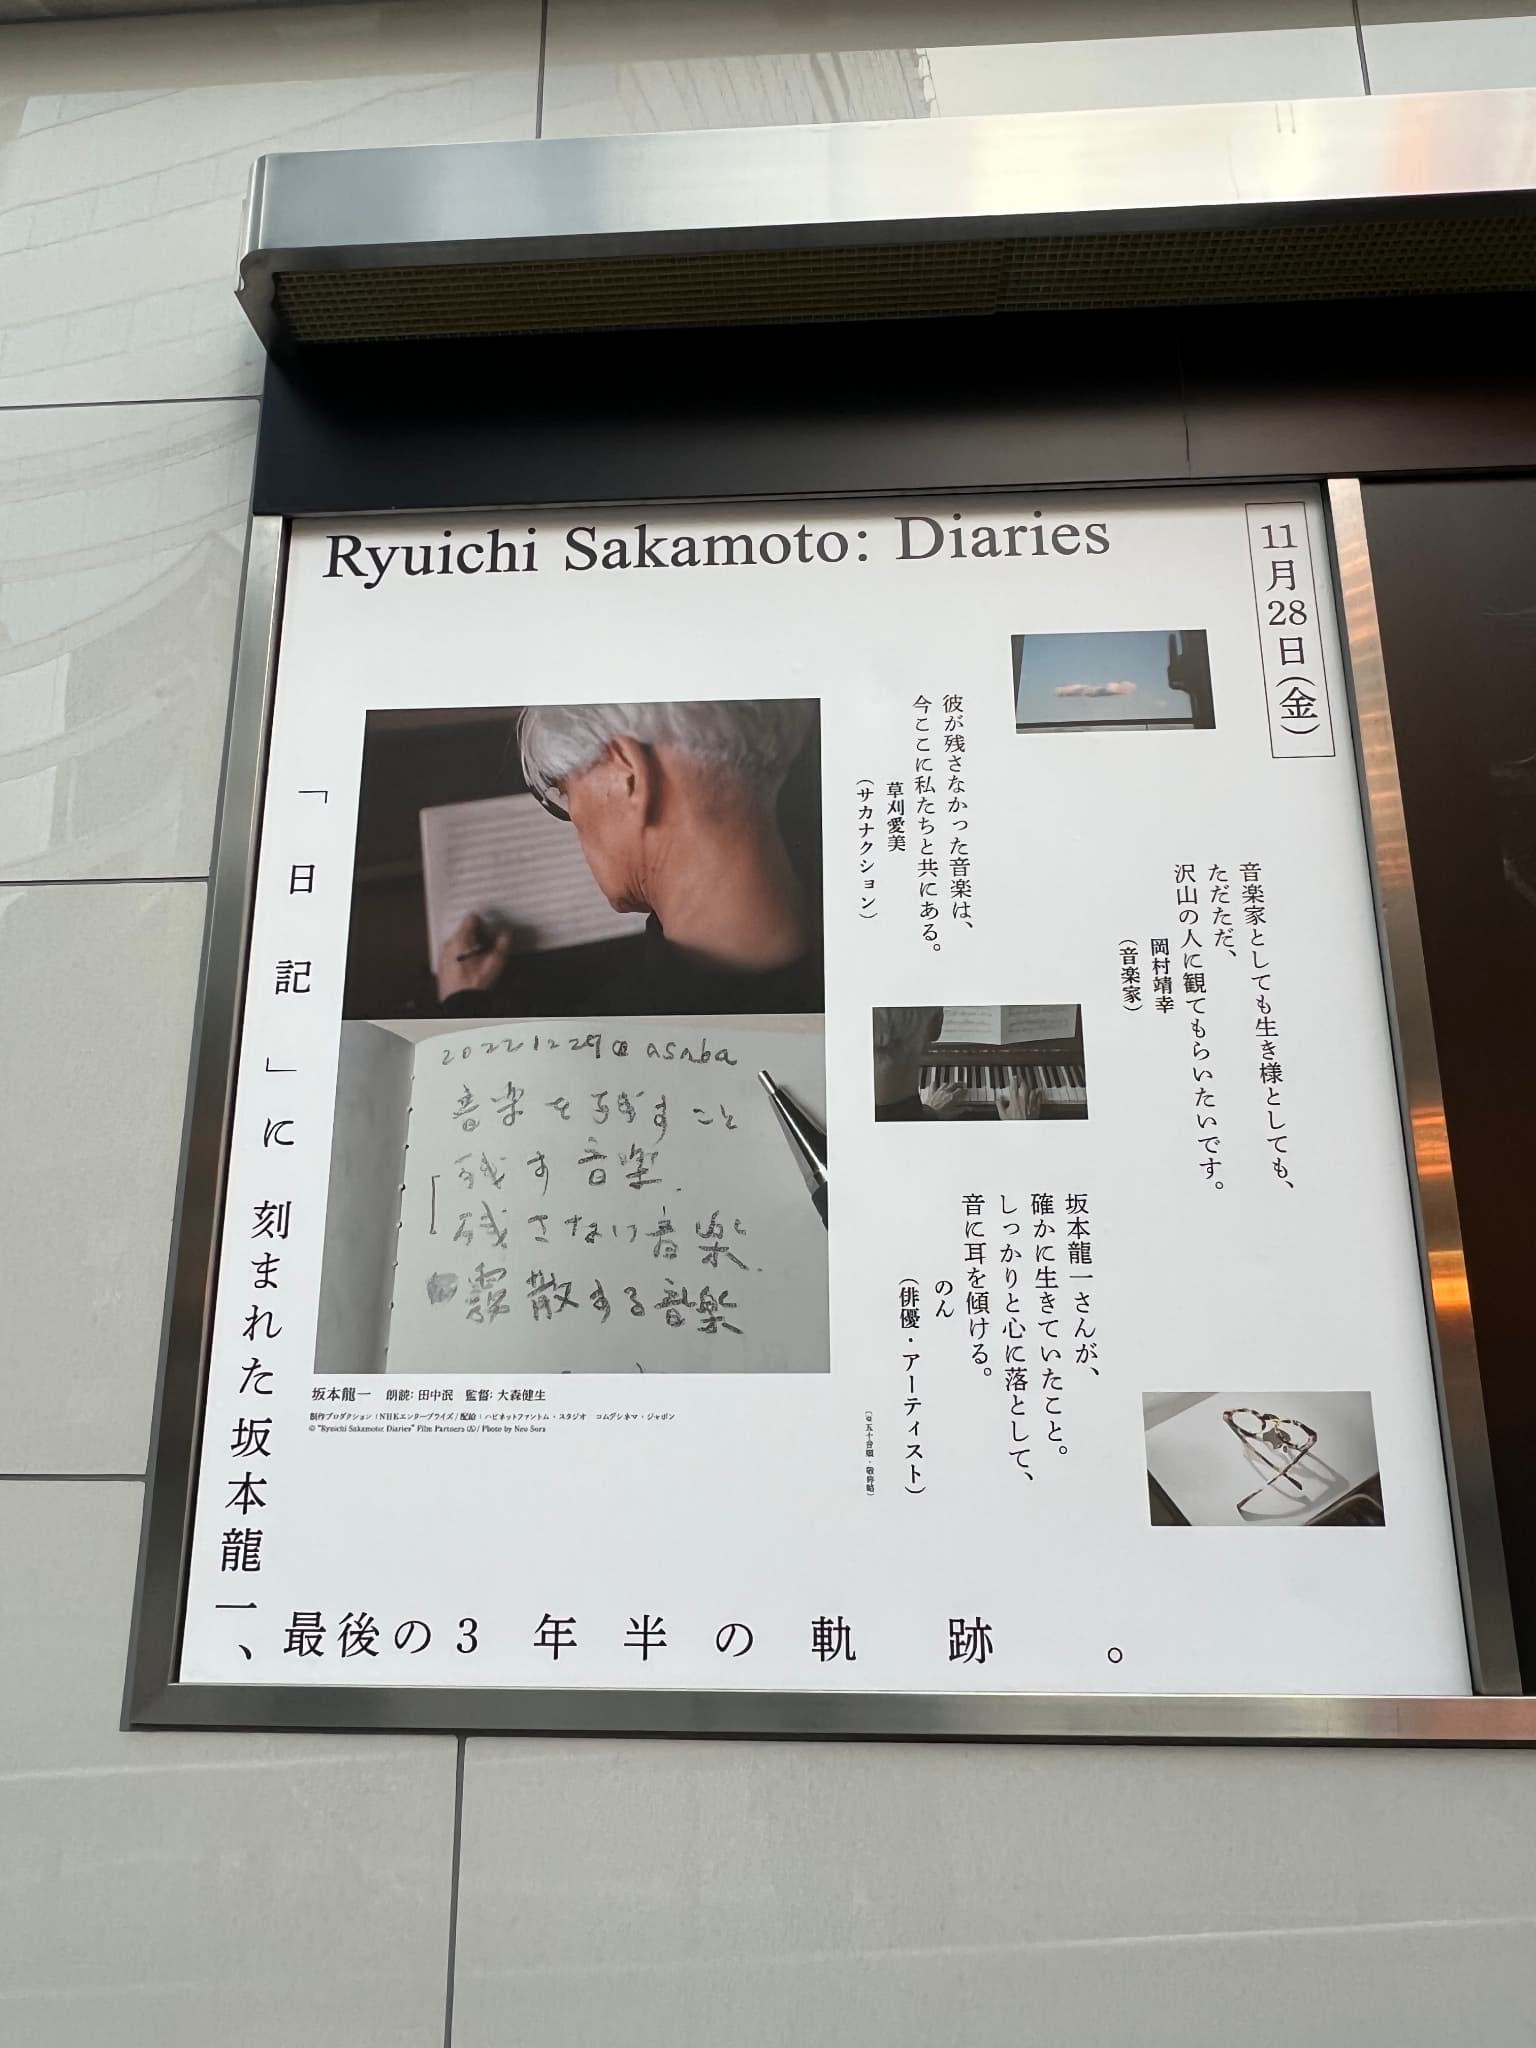 Ryuichi Sakamoto: Diaries
11月28日(金)
音楽家としても生き様としても、
ただただ、
沢山の人に観てもらいたいです。
岡村靖幸
(音楽家)
彼が残さなかった音楽は、
今ここに私たちと共にある。
草刈愛美
(サカナクション)
坂本龍一さんが、
確かに生きていたこと。
しっかりと心に落として、
音に耳を傾ける。
のん
(俳優・アーティスト)
(※五十音順・敬称略)
20221229@asaba
音楽を残すこと
残す音楽.
残さない音楽.
霧散する音楽
坂本龍一 朗読: 田中泯 監督: 大森健生
制作プロダクション:NHKエンタープライズ/配給:ハピネットファントム・スタジオ コムデシネマ・ジャポン
© "Ryuichi Sakamoto: Diaries" Film Partners / Photo by Neo Sora
「日記」に刻まれた坂本龍一、
最後の3年半の軌跡。